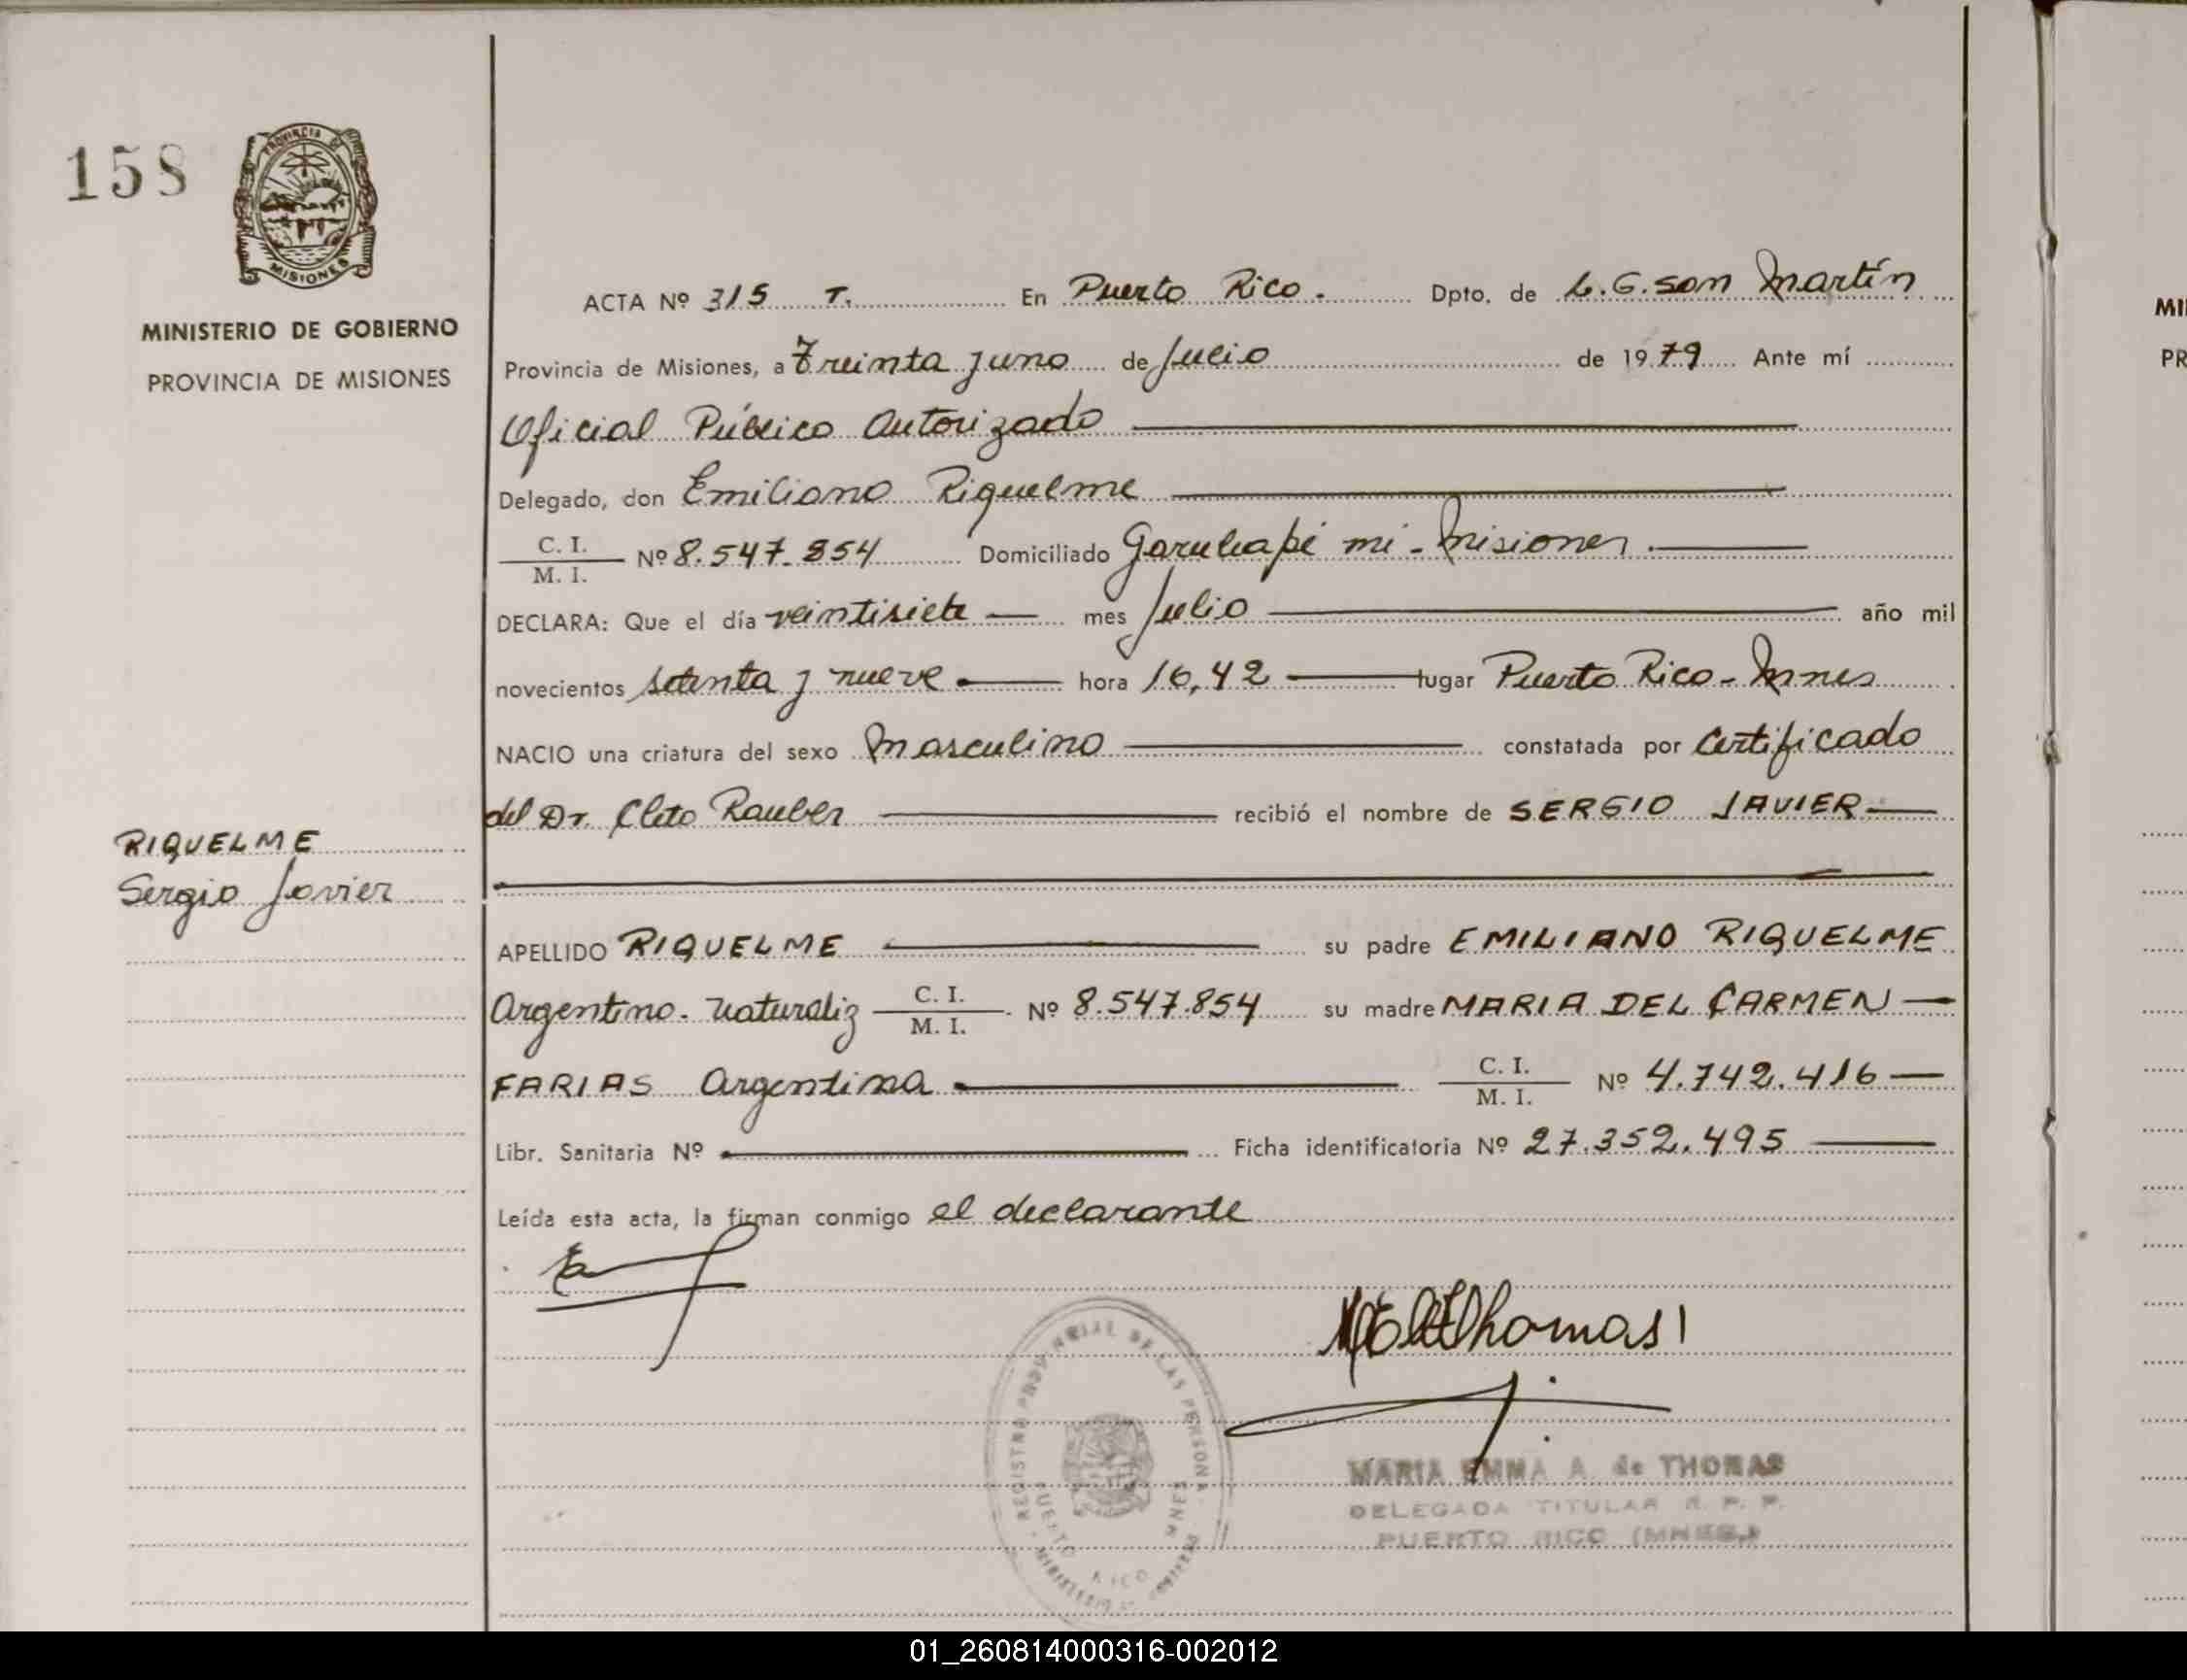 158
PROVINCIA DE
MISIONES
MINISTERIO DE GOBIERNO
PROVINCIA DE MISIONES
RIQUELME
Sergio Javier
ACTA Nº 315 T. En Puerto Rico. Dpto. de L.G. San Martín
Provincia de Misiones, a Treinta y uno de Julio de 1979 Ante mí
Oficial Público Autorizado
Delegado, don Emiliano Riquelme
C. I. / M. I. Nº 8.547.854 Domiciliado Garuhapé mi - Misiones
DECLARA: Que el día veintisiete mes Julio año mil
novecientos setenta y nueve hora 16,42 lugar Puerto Rico - Mnes
NACIO una criatura del sexo Masculino constatada por Certificado
del Dr. Cleto Rauber recibió el nombre de SERGIO JAVIER
APELLIDO RIQUELME su padre EMILIANO RIQUELME
Argentino. Naturaliz C. I. / M. I. Nº 8.547.854 su madre MARIA DEL CARMEN
FARIAS Argentina C. I. / M. I. Nº 4.742.416
Libr. Sanitaria Nº Ficha identificatoria Nº 27.352.495
Leída esta acta, la firman conmigo el declarante
Thomas
REGISTRO PROVINCIAL DE LAS PERSONAS
PUERTO RICO MNES
MARIA EMMA A. de THOMAS
DELEGADA TITULAR R. P. P.
PUERTO RICO (MNES.)
MI
PR
01_260814000316-002012